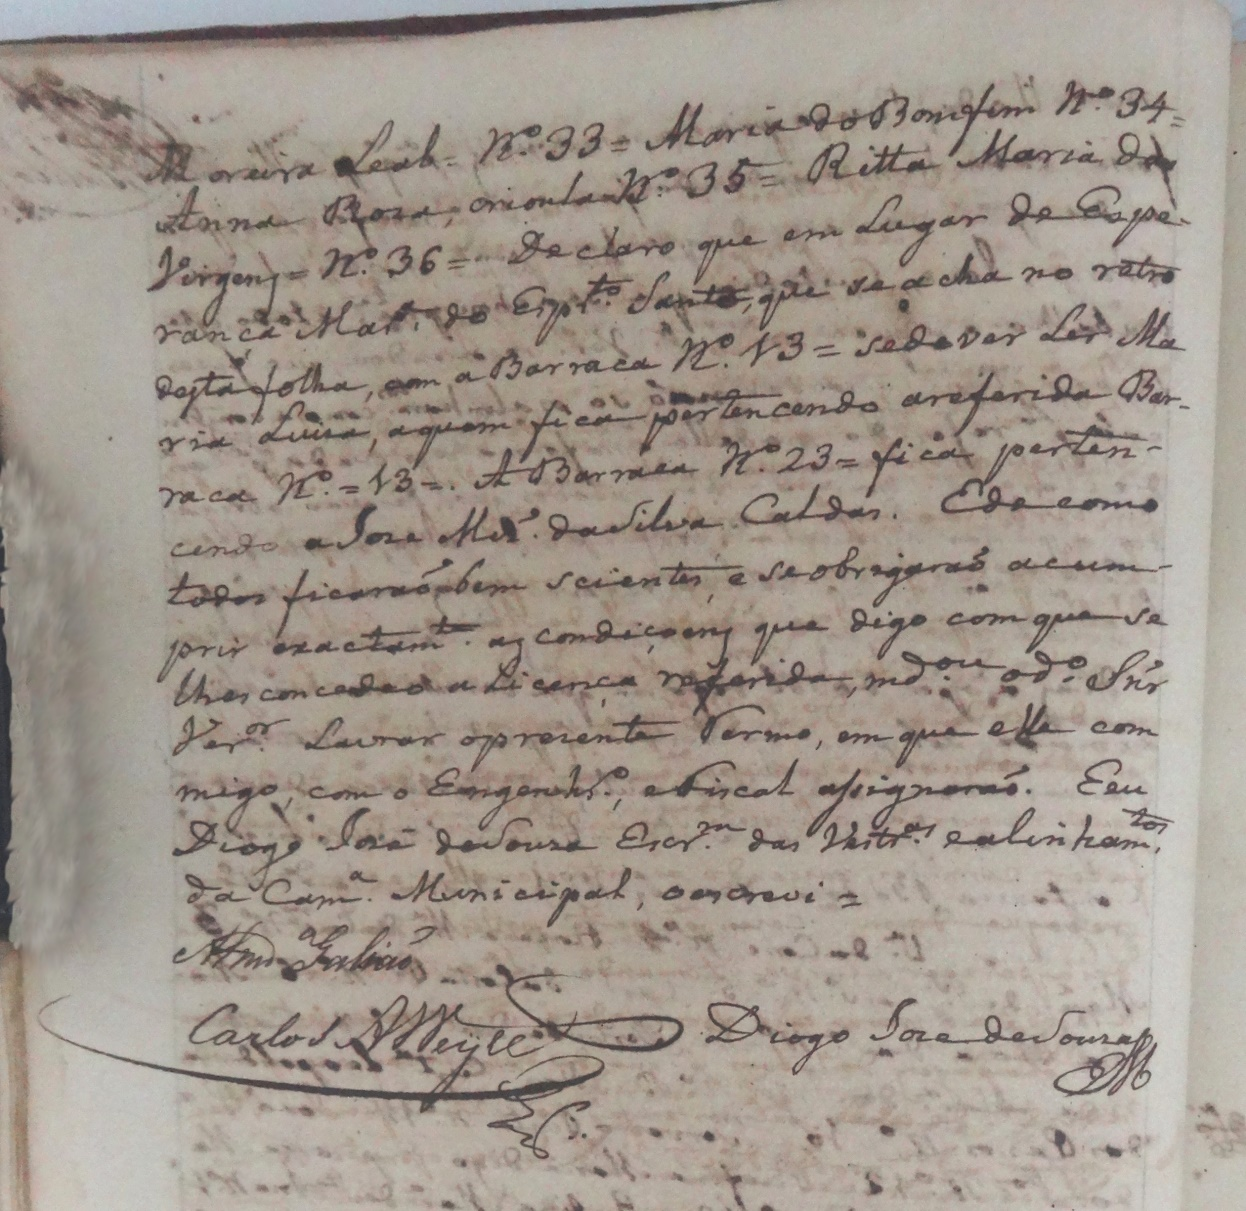 Moreira Leal = N.º 33 = Maria do Bomfim N.º 34 =
Anna Roza, crioula N.º 35 = Ritta Maria das
Virgens = N.º 36 = Declaro que em Lugar de Espe-
rança Mar.ª do Esp.to Santo, que se acha no retro
desta folha, com a Barraca N.º 13 = se dever Ler Ma
ria Luiza, aquem fica pertencendo areferida Bar-
raca N.º = 13 = . A Barraca N.º 23 = fica perten-
cendo a Joze da Silva Caldas. E de como
todos ficarão bem scientes, e se obrigarão acum-
prir exactam.te as condiçoens que digo com que se
lhes concedeo a Licença referida, md.ou o d.º Snr
Ver.or Lavrar opresente Termo, em que elle com
migo, com o Engenhr.º, e Fiscal assignarão. E eu
Diogo Joze de Souza Escr.m das Vestr.as e alinham.tos
da Cam.ª Municipal, o escrevi =
Galião
Carlos A Weyll Diogo Joze de Souza